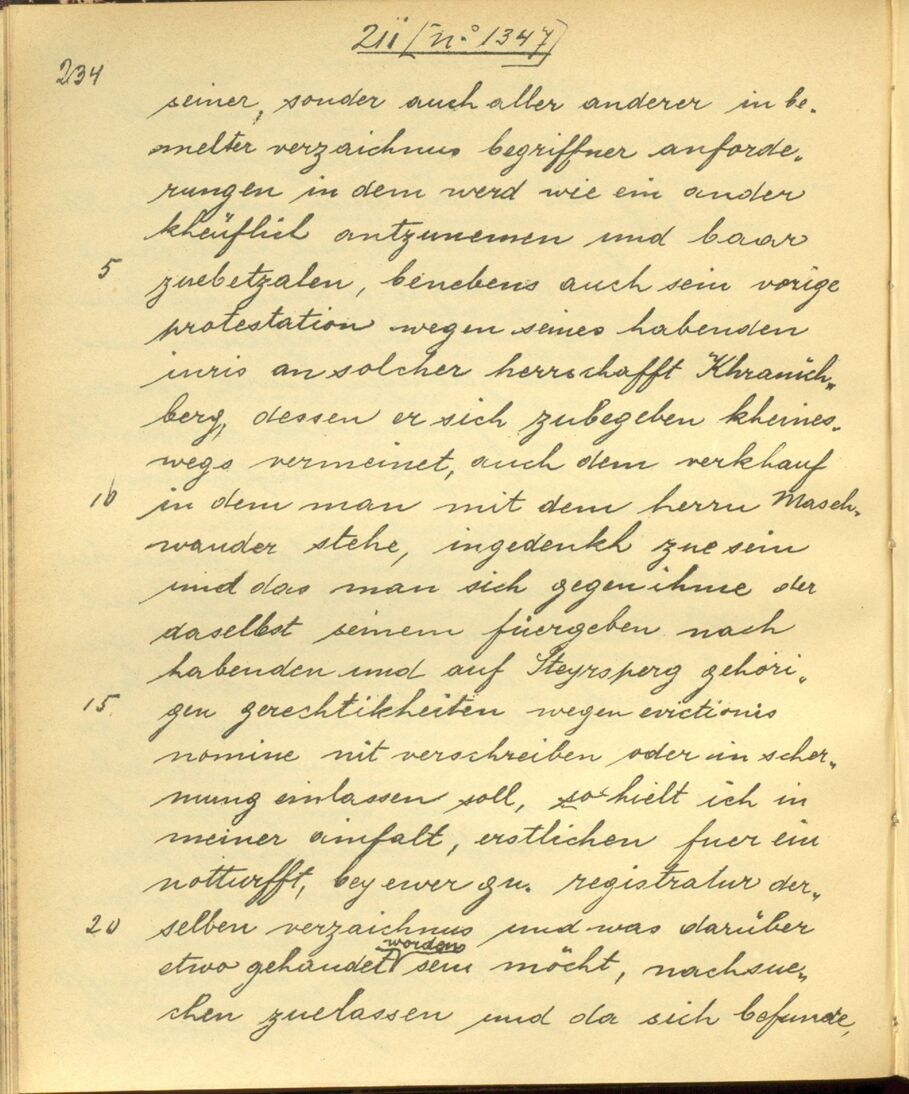 211 [n.° 1347]
234
seiner, sonder auch aller anderer in be„
melter verzaichnus begriffner anforde„
rungen in dem werd wie ein ander
kheüflich antzunemen und baar
5 zuebetzalen, benebens auch sein vorige
protestation wegen seines habenden
iuris an solcher herrschafft Khranich„
berg, dessen er sich zubegeben kheines„
wegs vermeinet, auch dem verkhauf
10 in dem man mit dem herrn Masch„
wander stehe, ingedenkh zue sein
und das man sich gegen ihme der
daselbst seinem füergeben nach
habenden und auf Steyrsperg gehöri„
15. gen gerechtikheiten wegen evictionis
nomine nit verschreiben oder in scher„
mung einlassen soll, so hielt ich in
meiner ainfalt, erstlichen fuer ein
notturfft, bey ewer gn. registratur der„
20 selben verzaichnus und was darüber
etwo gehandet worden sein möcht, nachsue„
chen zuelassen und da sich befunde,